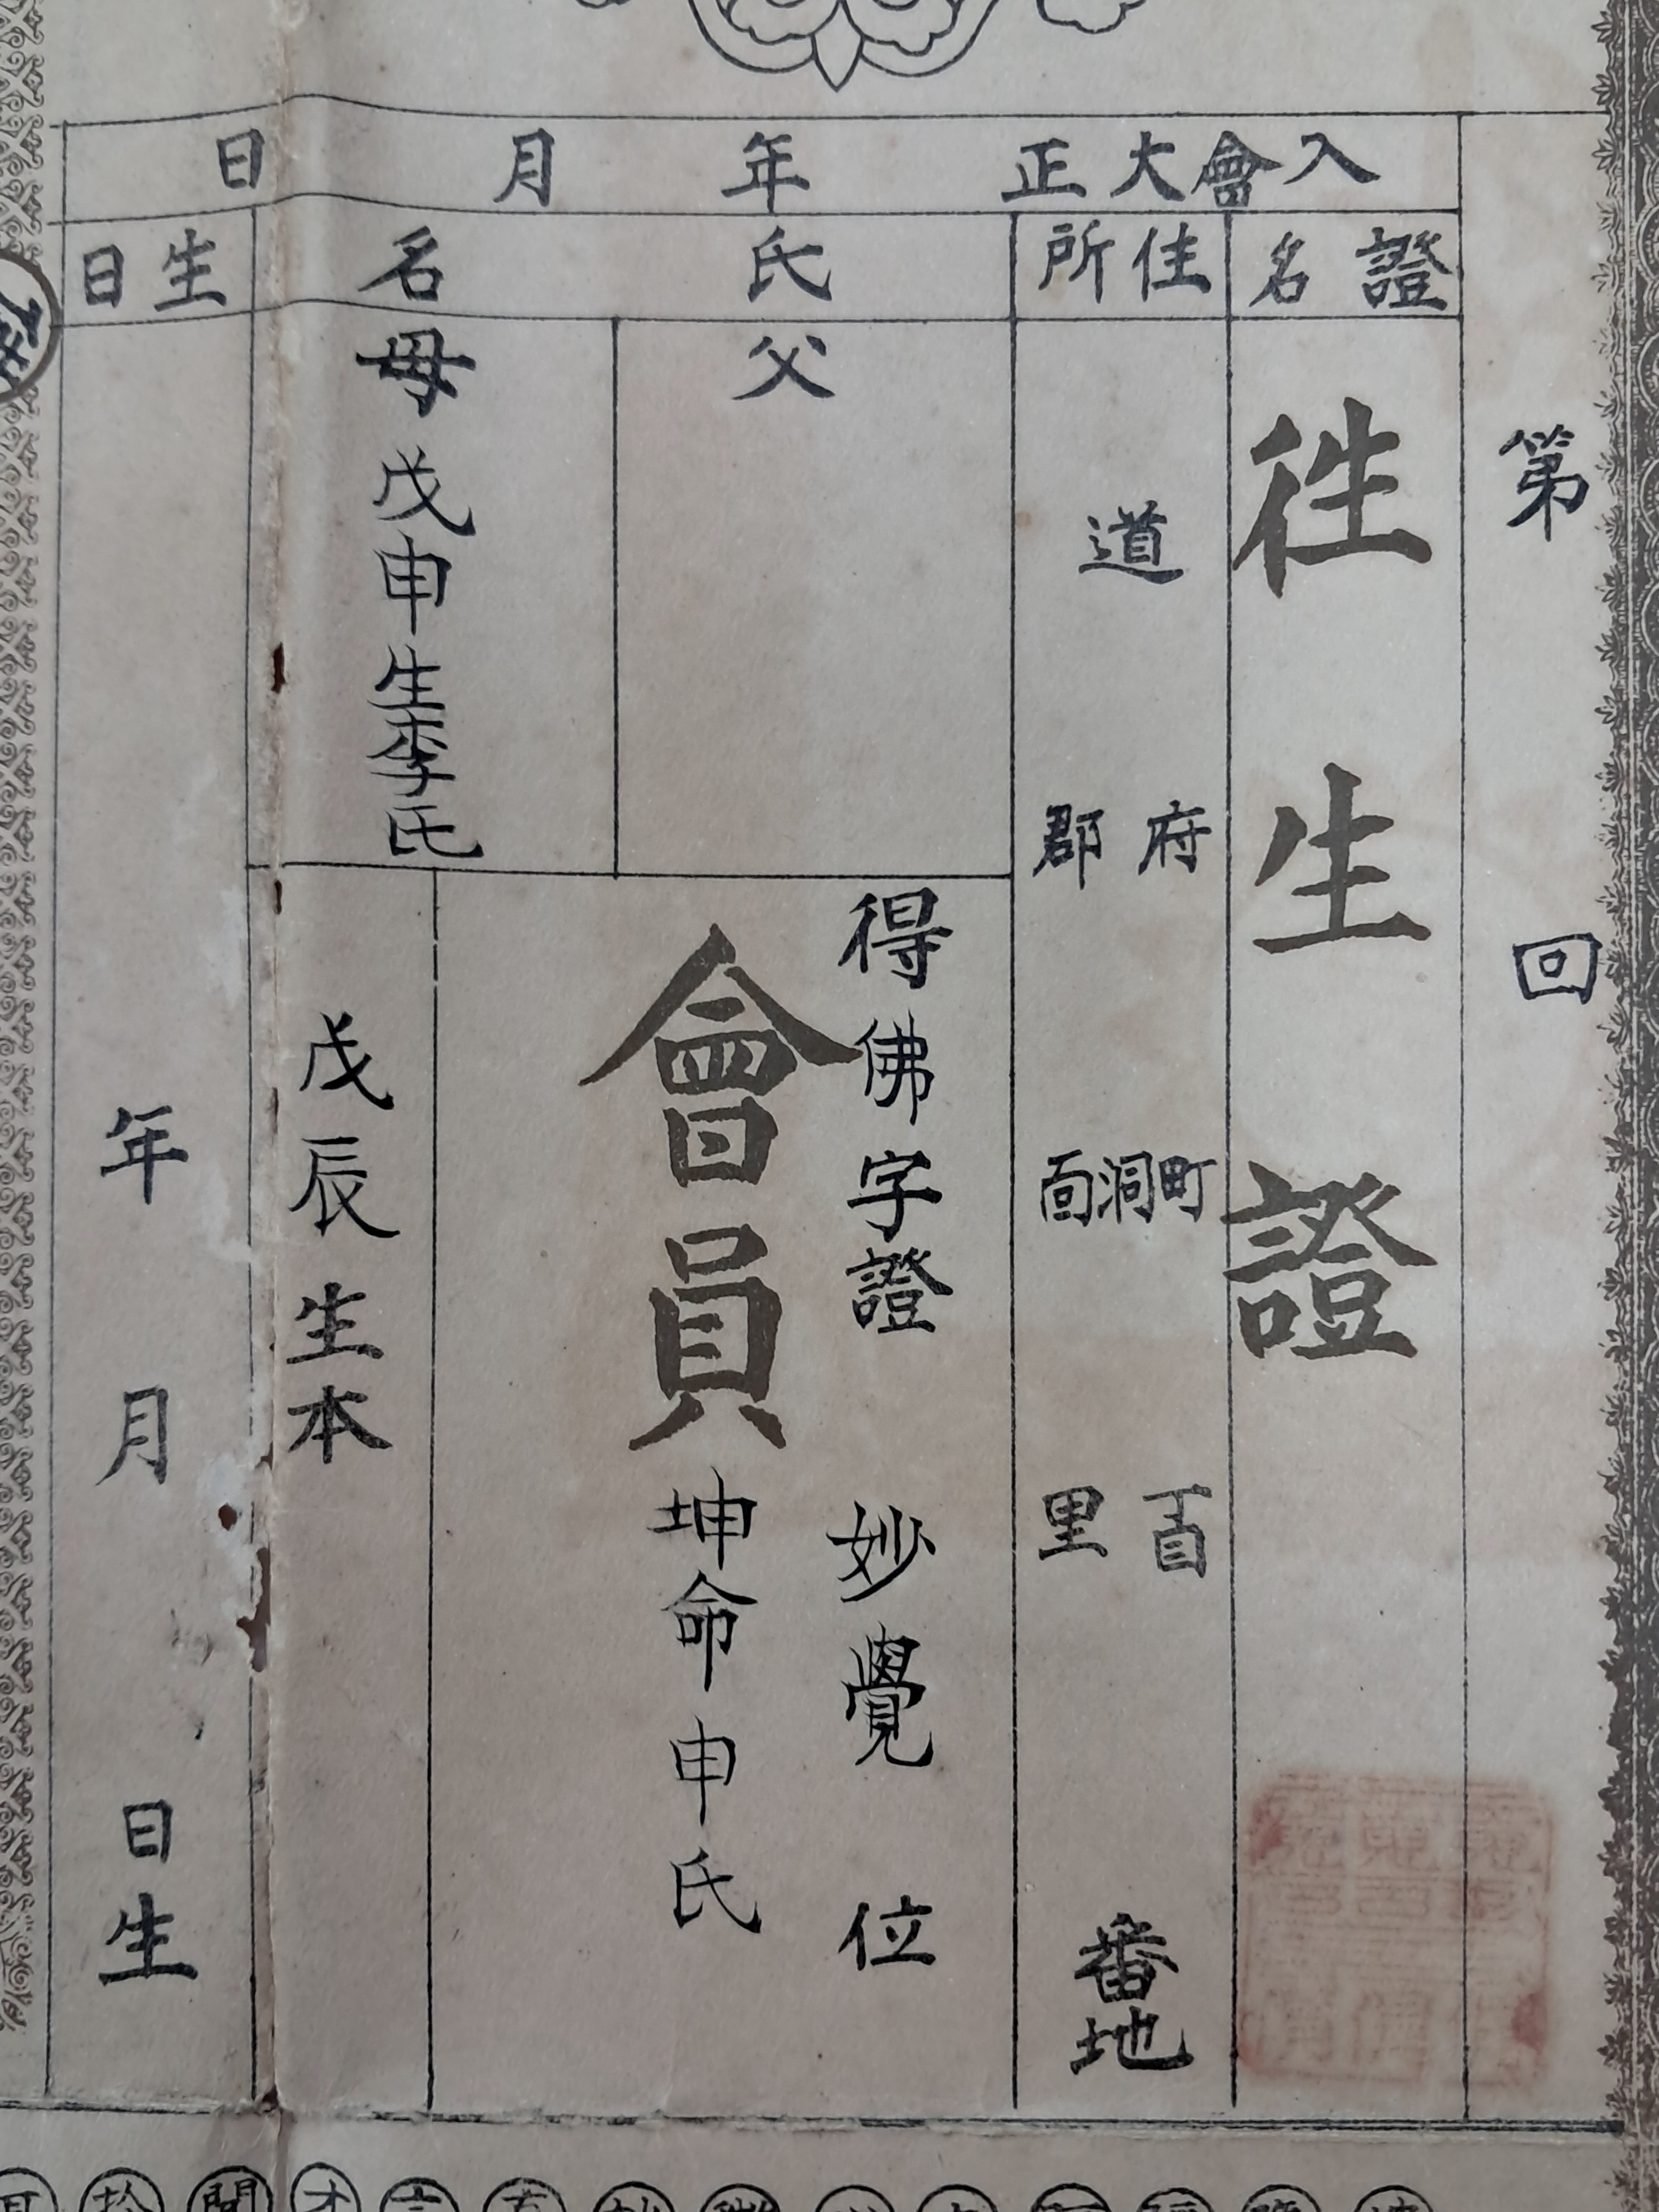 入會大正 年 月 日
證名
住所
氏 名
生日
第 回
往生證
道
府 郡
町 洞 面
百 里
番地
父
母 戊申生李氏
得佛字證 妙覺 位
會員 坤命申氏
戊辰生本
年 月 日生